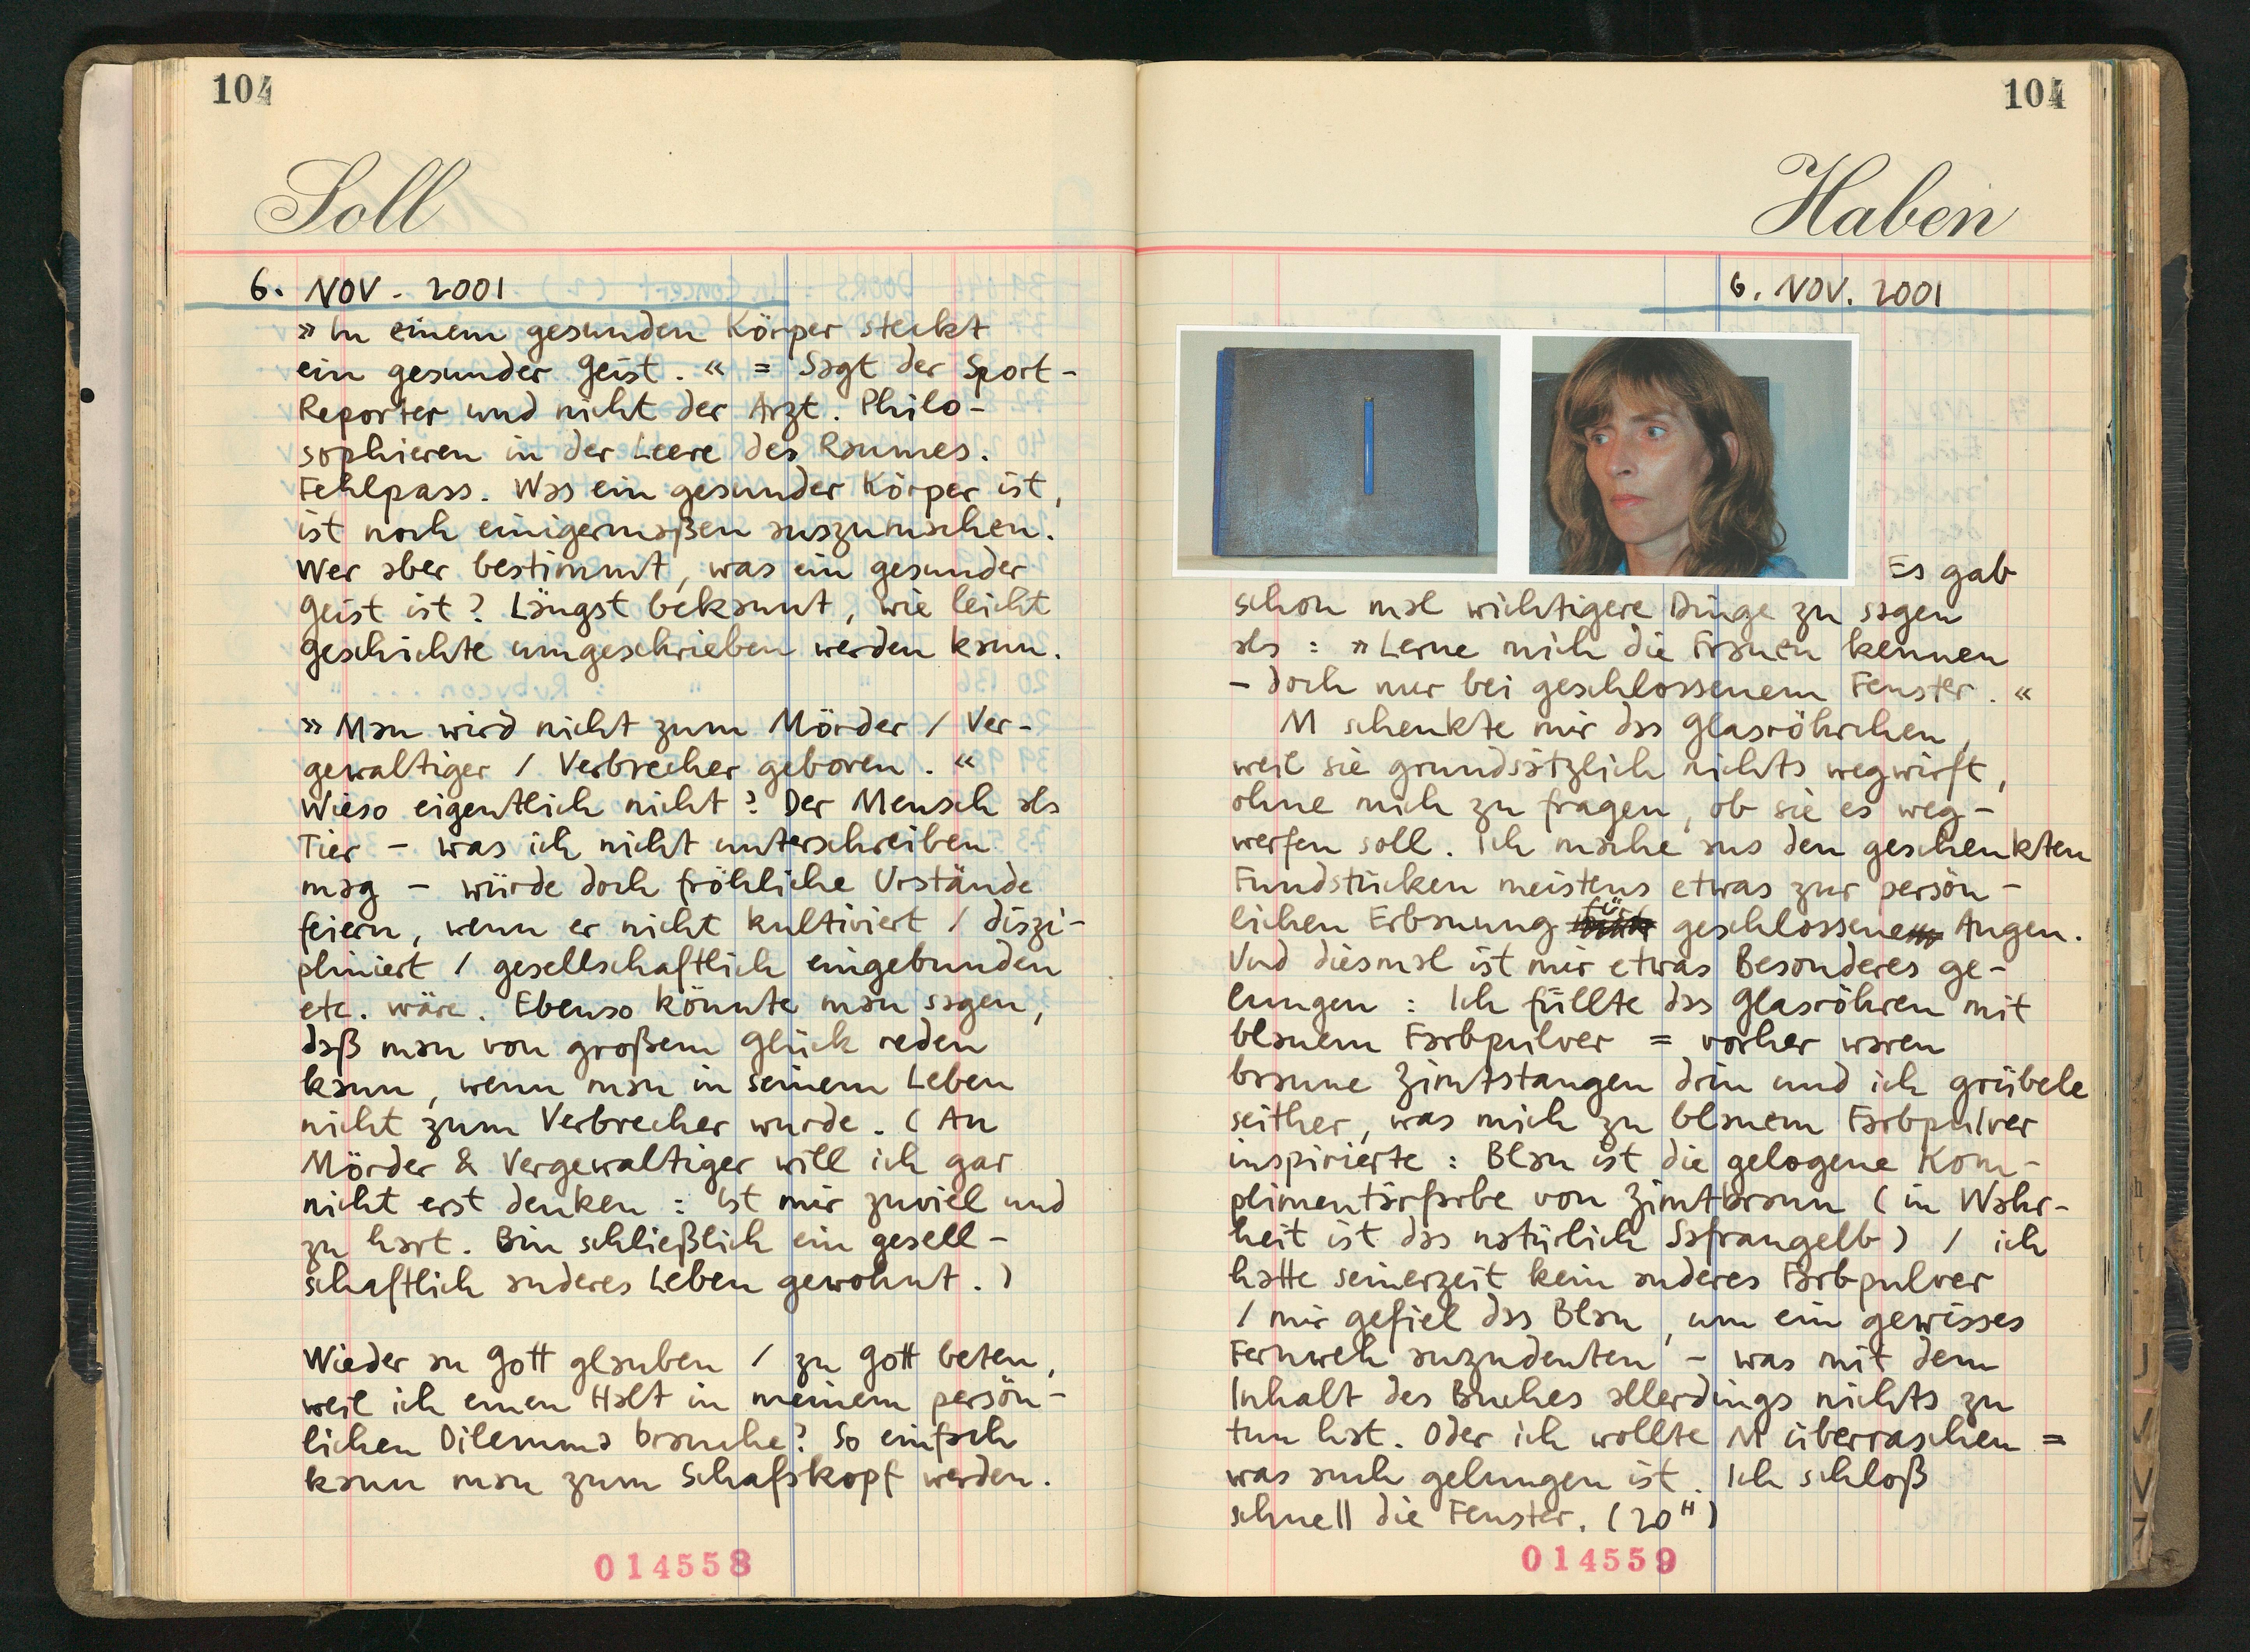 104
Soll
6. NOV. 2001
» In einem gesunden Körper steckt
ein gesunder Geist. « = Sagt der Sport-
Reporter und nicht der Arzt. Philo-
sophieren in der Leere des Raumes.
Fehlpass. Was ein gesunder Körper ist,
ist noch einigermaßen auszumachen.
Wer aber bestimmt, was ein gesunder
Geist ist? Längst bekannt, wie leicht
Geschichte umgeschrieben werden kann.
» Man wird nicht zum Mörder / Ver-
gewaltiger / Verbrecher geboren. «
Wieso eigentlich nicht? Der Mensch als
Tier – was ich nicht unterschreiben
mag – würde doch fröhliche Urstände
feiern, wenn er nicht kultiviert / diszi-
pliniert / gesellschaftlich eingebunden
etc. wäre. Ebenso könnte man sagen,
daß man von großem Glück reden
kann, wenn man in seinem Leben
nicht zum Verbrecher wurde. (An
Mörder & Vergewaltiger will ich gar
nicht erst denken : ist mir zuviel und
zu hart. Bin schließlich ein gesell-
schaftlich anderes Leben gewohnt.)
Wieder an Gott glauben / zu Gott beten,
weil ich einen Halt in meinem persön-
lichen Dilemma brauche? So einfach
kann man zum Schafskopf werden.
014558
104
Haben
6. NOV. 2001
Es gab
schon mal wichtigere Dinge zu sagen
als : » Lerne mich die Frauen kennen
– doch nur bei geschlossenem Fenster. «
M schenkte mir das Glasröhrchen,
weil sie grundsätzlich nichts wegwirft,
ohne mich zu fragen, ob sie es weg-
werfen soll. Ich mache aus den geschenkten
Fundstücken meistens etwas zur persön-
lichen Erbauung für geschlossene Augen.
Und diesmal ist mir etwas Besonderes ge-
lungen : Ich füllte das Glasröhren mit
blauem Farbpulver = vorher waren
braune Zimtstangen drin und ich grübele
seither, was mich zu blauem Farbpulver
inspirierte : Blau ist die gelogene Kom-
plimentärfarbe von Zimtbraun (in Wahr-
heit ist das natürlich Safrangelb) / ich
hatte seinerzeit kein anderes Farbpulver
/ mir gefiel das Blau, um ein gewisses
Fernweh anzudeuten – was mit dem
Inhalt des Buches allerdings nichts zu
tun hat. Oder ich wollte M überraschen =
was auch gelungen ist. Ich schloß
schnell die Fenster. (20H)
014559